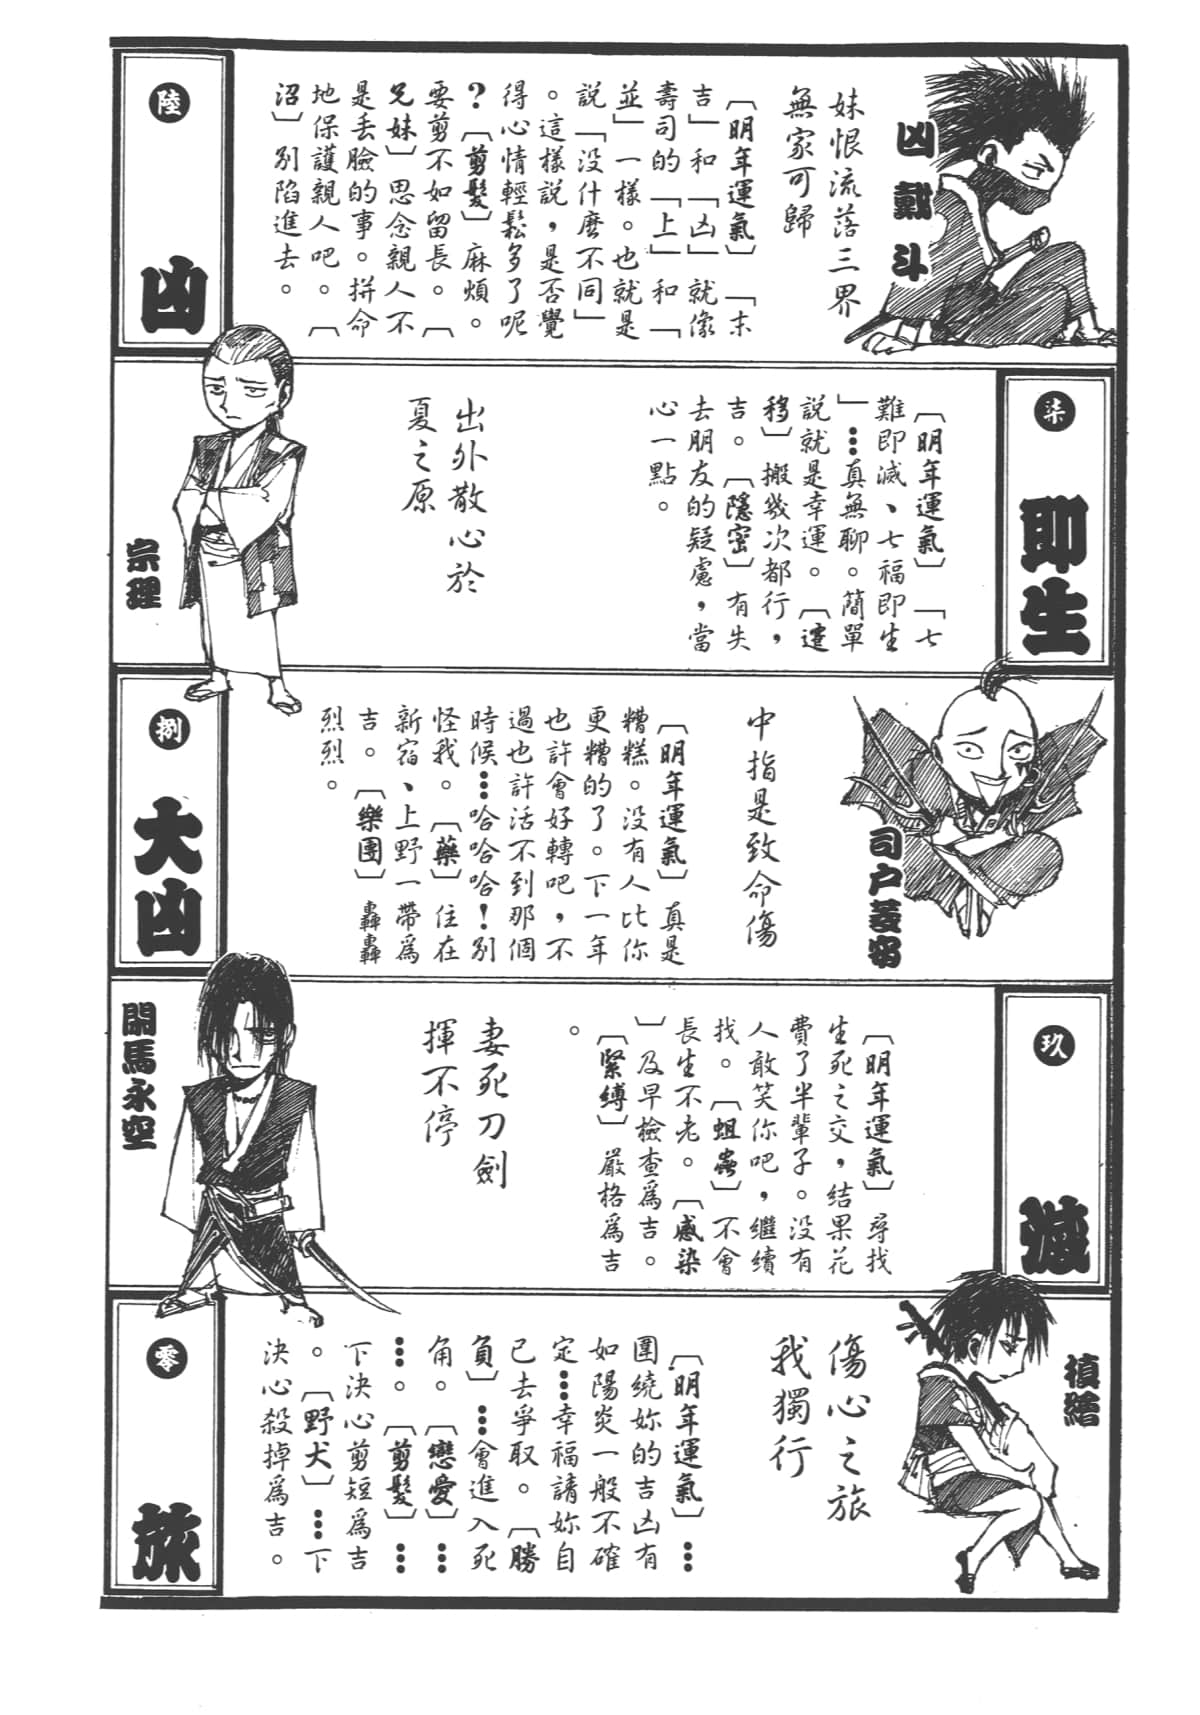 陸
凶
凶戴斗
妹恨流落三界
無家可歸
〔明年運氣〕「末
吉」和「凶」就像
壽司的「上」和「
並」一樣。也就是
說「没什麽不同」
。這樣說，是否覺
得心情輕鬆多了呢
？〔剪髮〕麻煩。
要剪不如留長。〔
兄妹〕思念親人不
是丢臉的事。拼命
地保護親人吧。〔
沼〕别陷進去。
柒
即生
〔明年運氣〕「七
難即滅、七福即生
」…真無聊。簡單
說就是幸運。〔遷
移〕搬幾次都行，
吉。〔隱密〕有失
去朋友的疑慮，當
心一點。
出外散心於
夏之原
宗理
捌
大凶
司户菱安
中指是致命傷
〔明年運氣〕真是
糟糕。没有人比你
更糟的了。下一年
也許會好轉吧，不
過也許活不到那個
時候…哈哈哈！别
怪我。〔藥〕住在
新宿、上野一帶爲
吉。〔樂團〕轟轟
烈烈。
玖
滅
〔明年運氣〕尋找
生死之交，結果花
費了半輩子。没有
人敢笑你吧，繼續
找。〔蛆蟲〕不會
長生不老。〔感染
〕及早檢查爲吉。
〔緊縛〕嚴格爲吉
。
妻死刀劍
揮不停
閑馬永空
零
旅
槙繪
傷心之旅
我獨行
〔明年運氣〕…
圍繞妳的吉凶有
如陽炎一般不確
定…幸福請妳自
已去爭取。〔勝
負〕…會進入死
角。〔戀愛〕…
…。〔剪髮〕…
下決心剪短爲吉
。〔野犬〕…下
決心殺掉爲吉。